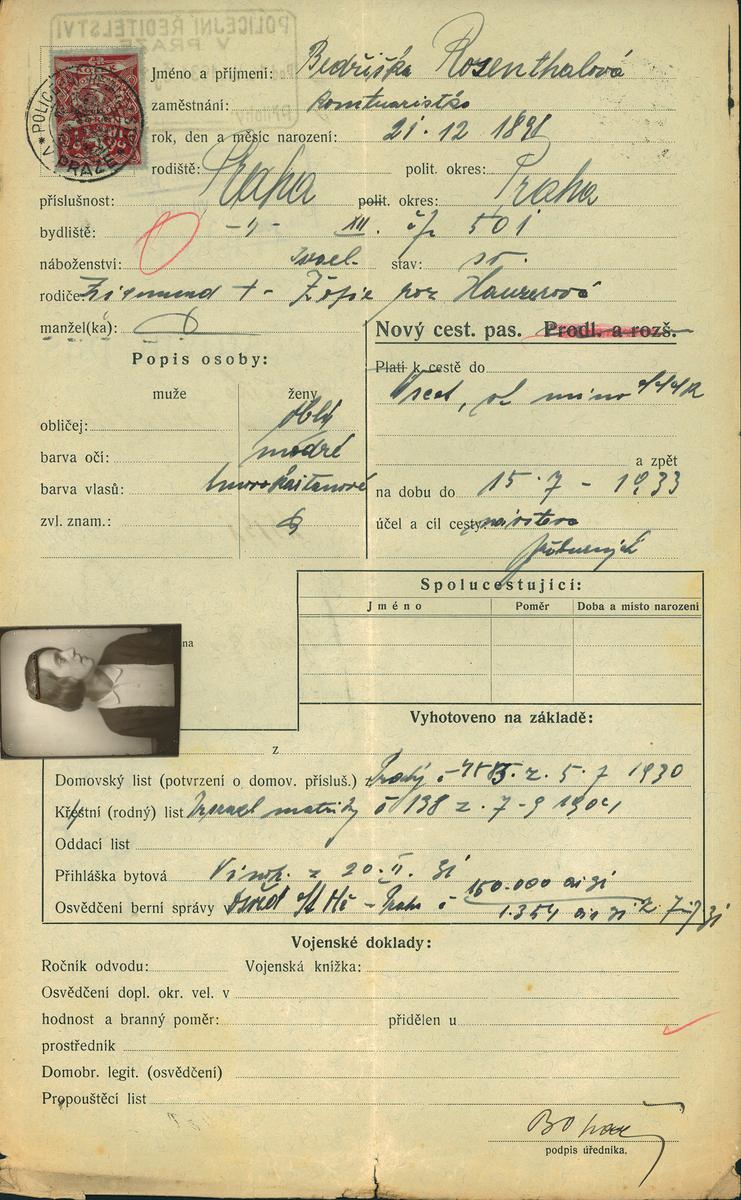 POLICEJNÍ ŘEDITELSTVÍ
V PRAZE
V PRAZE
Jméno a příjmení: Bedřiška Rosenthalová
zaměstnání: kontoaristka
rok, den a měsíc narození: 21. 12 1891
rodiště: Praha polit. okres: Praha
příslušnost: polit. okres:
bydliště: -"- XII. čp 501
náboženství: israel. stav: sv.
rodiče: Zigmund + - Žofie roz Hauserová
manžel(ka):
Nový cest. pas. Prodl. a rozš.
Popis osoby:
Platí k cestě do
muže ženy
obličej: oblý
barva očí: modré
barva vlasů: tmavokaštanové
zvl. znam.:
a zpět
na dobu do 15. 7 - 1933
účel a cíl cesty: návštěva
příbuzných
Spolucestující:
Jméno Poměr Doba a místo narození
na
Vyhotoveno na základě:
z
Domovský list (potvrzení o domov. přísluš.) z Prahy č z. 5. 7 1930
Křestní (rodný) list Israel matriky č 138 z. 7-9 1904
Oddací list
Přihláška bytová Vinoh. z 20. II. 31
Osvědčení berní správy 150.000 ai 31
1.354
Vojenské doklady:
Ročník odvodu: Vojenská knížka:
Osvědčení dopl. okr. vel. v
hodnost a branný poměr: přidělen u
prostředník
Domobr. legit. (osvědčení)
Propouštěcí list
podpis úředníka.